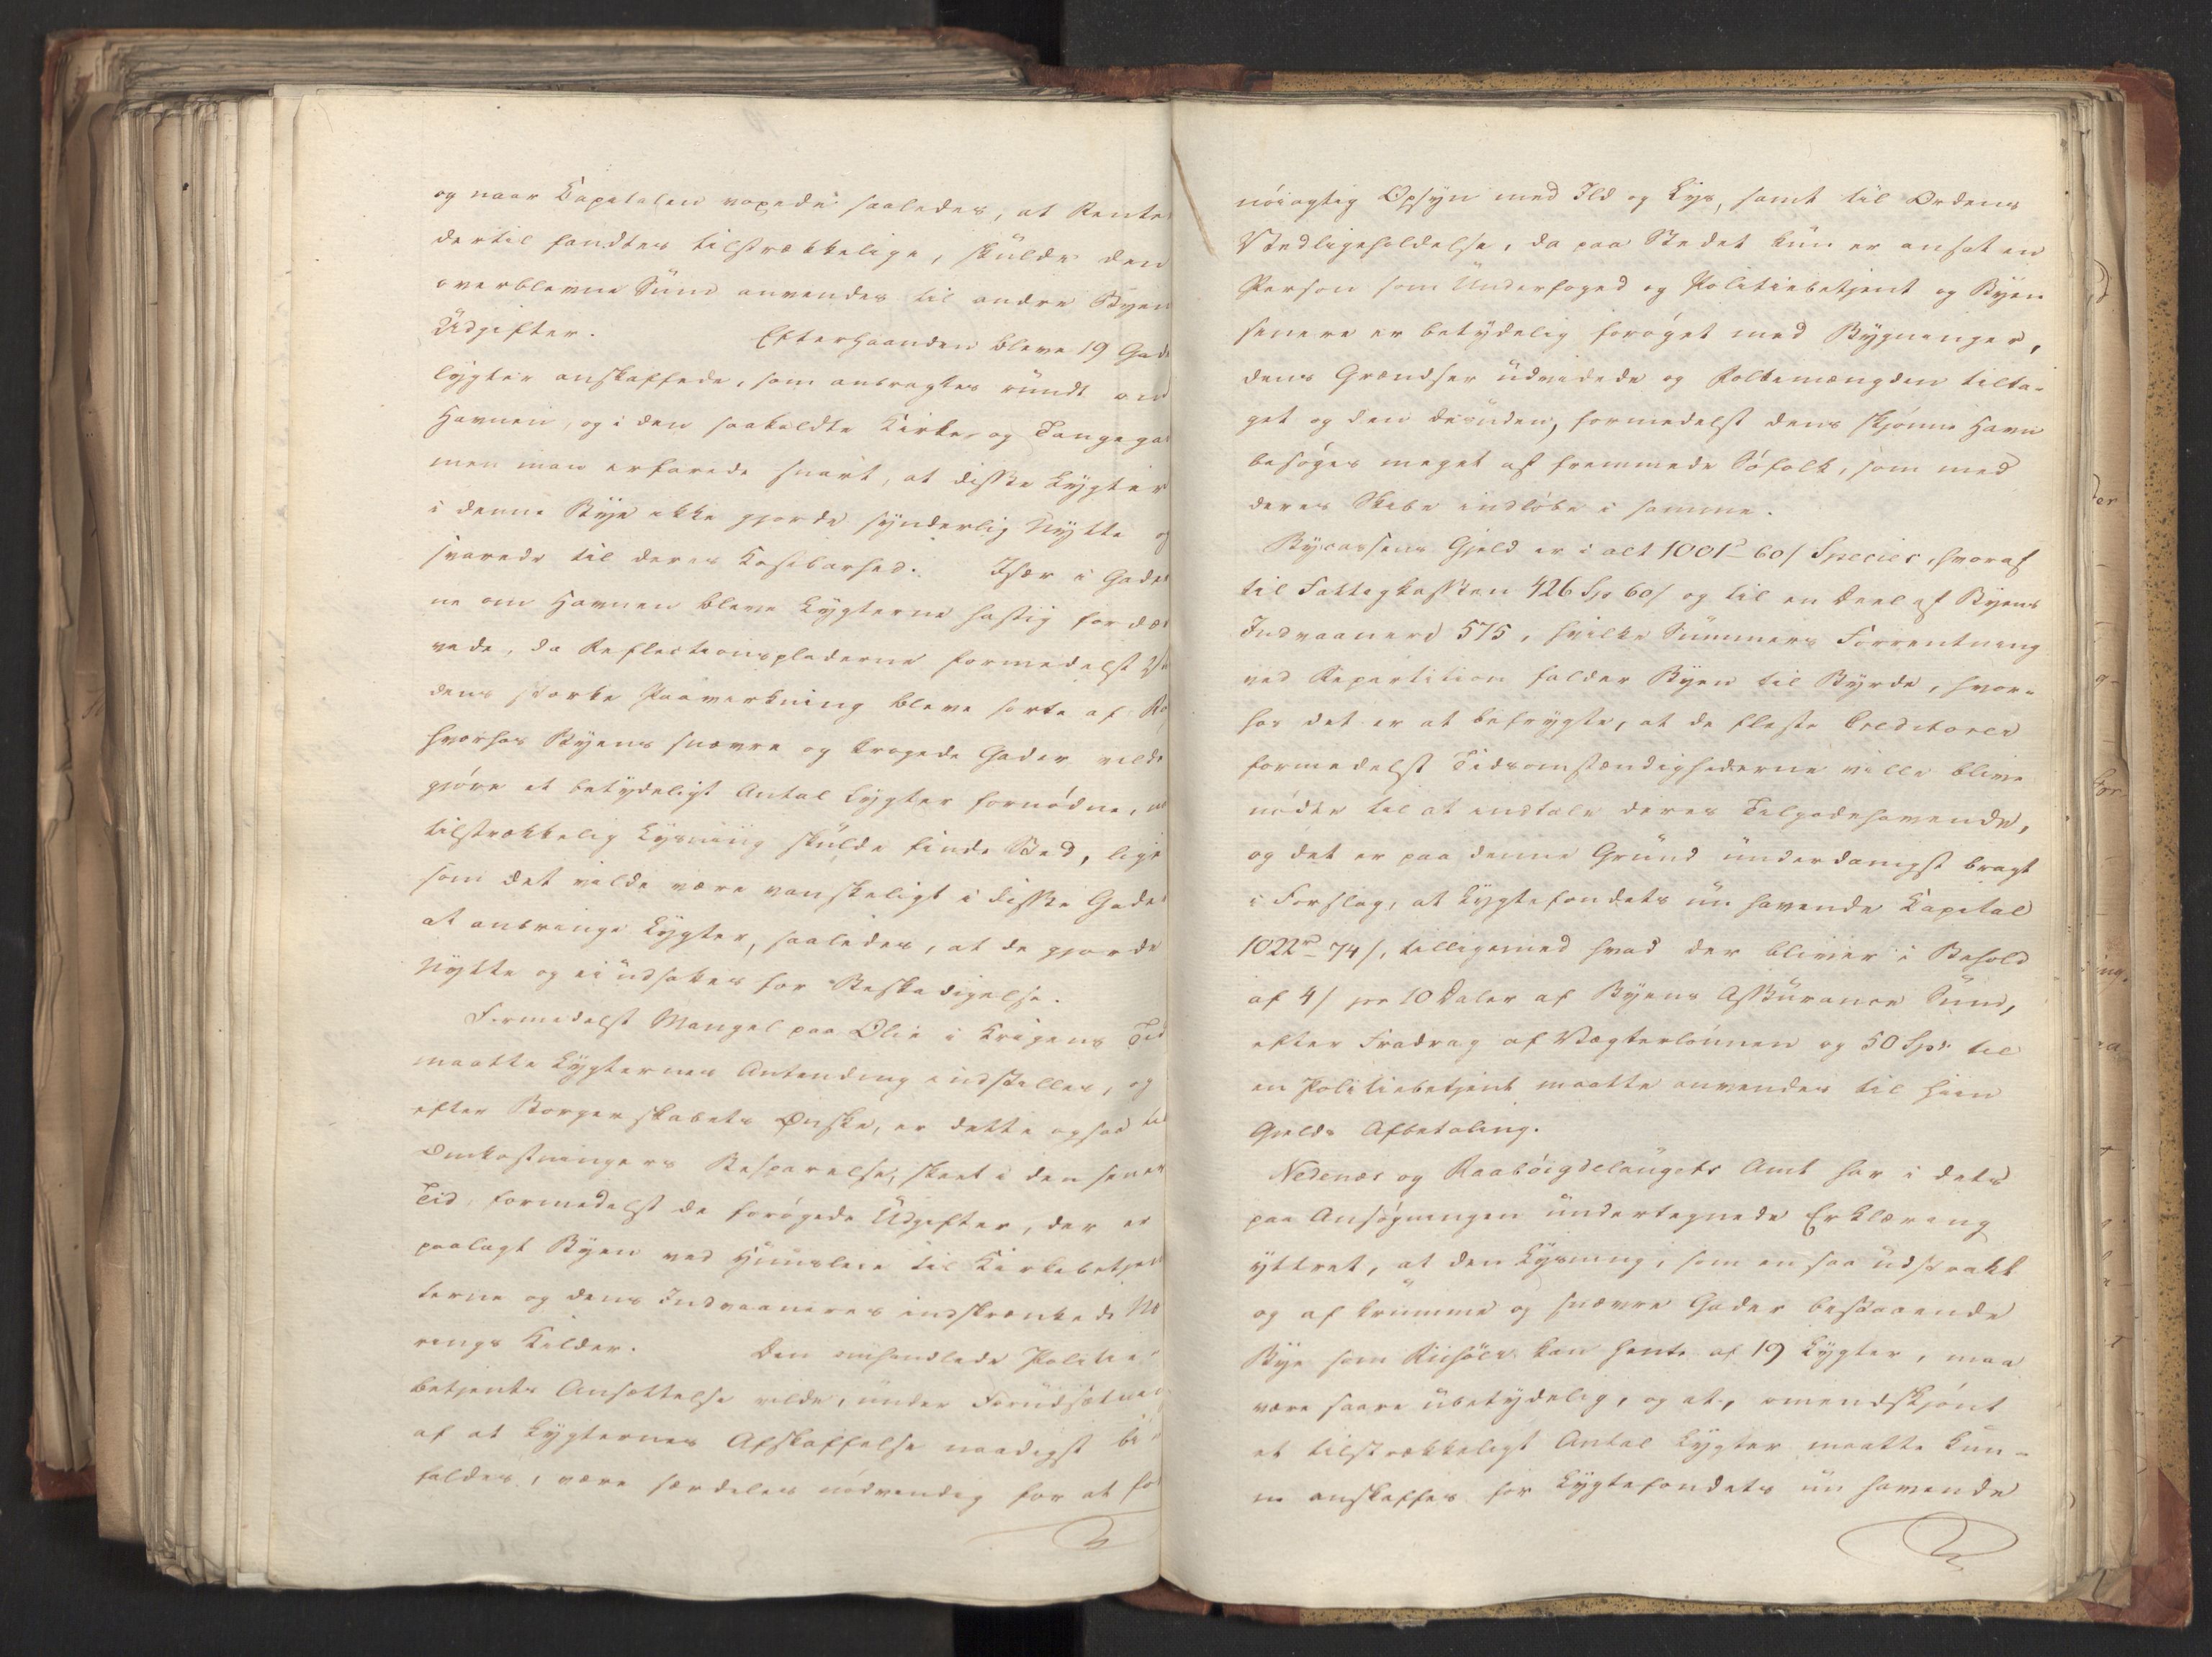 og naar Kapitalen voxede saaledes, at Rente
dertil fandtes tilstrækkelige, skulde den
overblevne Sum anvendes til andre Byen
Udgifter. Efterhaanden bleve 19 Gade
lygter anskaffede, som anbragtes rundt om
Havnen, og i den saakaldte Kirke- og Tangega
men man erfarede snart, at disse Lygter
i denne Bye ikke gjorde synderlig Nytte og
svarede til deres Kostbarhed. Især i Gader
ne om Havnen bleve Lygterne hastig fordær
vede, da Reflectionspladerne formedelst
dens stærke Paavirkning bleve sorte af
hvorhos Byens snævre og krogede Gader vilde
gjöre et betydeligt Antal Lygter fornødne, 
tilstrækkelig Lysning skulde finde Sted, lige
som det vilde være vanskeligt i disse Gader
at anbringe Lygter, saaledes, at de gjorde
Nytte og ei udsattes for Beskadigelse.
Formedelst Mangel paa Olie i Krigens Tid
maatte Lygternes Antending indstilles, og
efter Borgerskabets Ønske, er dette ogsaa til
Omkostningers Besparelse, skeet i den senere
Tid, formedelst de forøgede Udgifter, der er
paalagt Byen ved Huusleie til Kirkebetjen
terne og dens Indvaaneres indskrænkede Næ
rings Kilder. Den omhandlede Politie-
betjents Ansættelse vilde, under Forudsætning
af at Lygternes Afskaffelse naadigst bi-
faldes, være særdeles nødvendig for at 
nöiagtig Opsyn med Ild og Lys, samt til Ordens
Vedligeholdelse, da paa Stedet kun er ansat en
Person som Underfoged og Politiebetjent og Byen
senere er betydelig forøget med Bygninger,
dens Grændser udvidede og Folkemængden tilta-
get og den desuden, formedelst dens skjönne Havn
besöges meget af fremmede Söfolk, som med
deres Skibe indlöbe i samme.
Bycassens Gjeld er i alt 1001 60/ Species, hvoraf
til Fattigkassen 426 Sp 60/ og til en Deel af Byens
Indvaanere 575, hvilke Summers Forrentning
ved Repartition falder Byen til Byrde, hvor-
hos det er at befrygte, at de fleste Creditorer
formedelst Tidsomstændighederne ville blive
nödte til at indtale deres Tilgodehavende,
og det er paa denne Grund underdanigst bragt
i Forslag, at Lygtefondets nu havende Kapital
1022 - 74/, tilligemed hvad der bliver i Behold
af 4/ pr 10 Daler af Byens Assurance Sum,
efter Fradrag af Vægterlönnen og 50 Spd. til
en Politiebetjent maatte anvendes til hiin
Gjelds Afbetaling.
Nedenæs og Raaböigdelaugets Amt har i dets
paa Ansøgningen undertegnede Erklæring
yttret, at den Lysning, som en saa udstrakt
og af krumme og snævre Gader bestaaende
Bye som Riisöer kan hente af 19 Lygter, maa
være saare ubetydelig, og at, omendskjönt
et tilstrækkeligt Antal Lygter maatte kun-
ne anskaffes for Lygtefondets nu havende